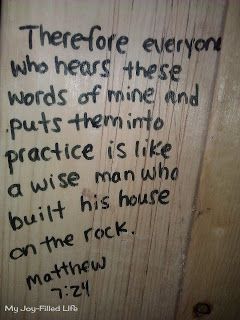 Therefore everyone
who hears these
words of mine and
puts them into
practice is like
a wise man who
built his house
on the rock.
Matthew
7:24
My Joy-Filled Life